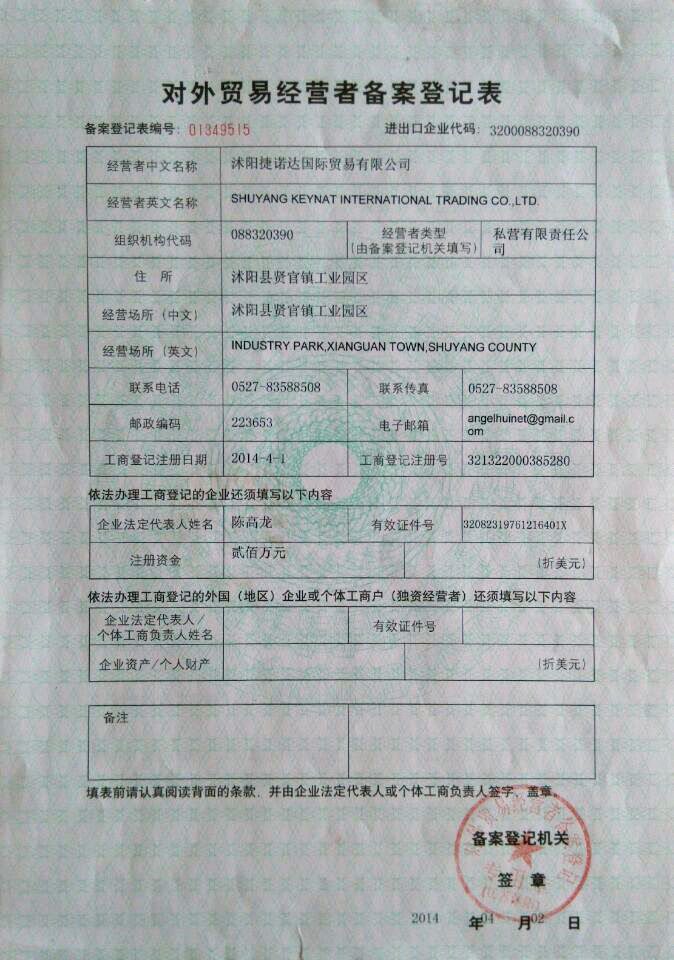 对外贸易经营者备案登记表
备案登记表编号: 01349515 进出口企业代码: 3200088320390
经营者中文名称 沭阳捷诺达国际贸易有限公司
经营者英文名称 SHUYANG KEYNAT INTERNATIONAL TRADING CO.,LTD.
组织机构代码 088320390 经营者类型 私营有限责任公
(由备案登记机关填写) 司
住 所 沭阳县贤官镇工业园区
经营场所 (中文) 沭阳县贤官镇工业园区
经营场所 (英文) INDUSTRY PARK,XIANGUAN TOWN,SHUYANG COUNTY
联系电话 0527-83588508 联系传真 0527-83588508
邮政编码 223653 电子邮箱 angelhuinet@gmail.c
om
工商登记注册日期 2014-4-1 工商登记注册号 321322000385280
依法办理工商登记的企业还须填写以下内容
企业法定代表人姓名 陈高龙 有效证件号 32082319761216401X
注册资金 贰佰万元 (折美元)
依法办理工商登记的外国 (地区) 企业或个体工商户 (独资经营者) 还须填写以下内容
企业法定代表人/
个体工商负责人姓名 有效证件号
企业资产/个人财产 (折美元)
备注
填表前请认真阅读背面的条款, 并由企业法定代表人或个体工商负责人签字、盖章。
备案登记机关
签 章
2014 年 04 月 02 日